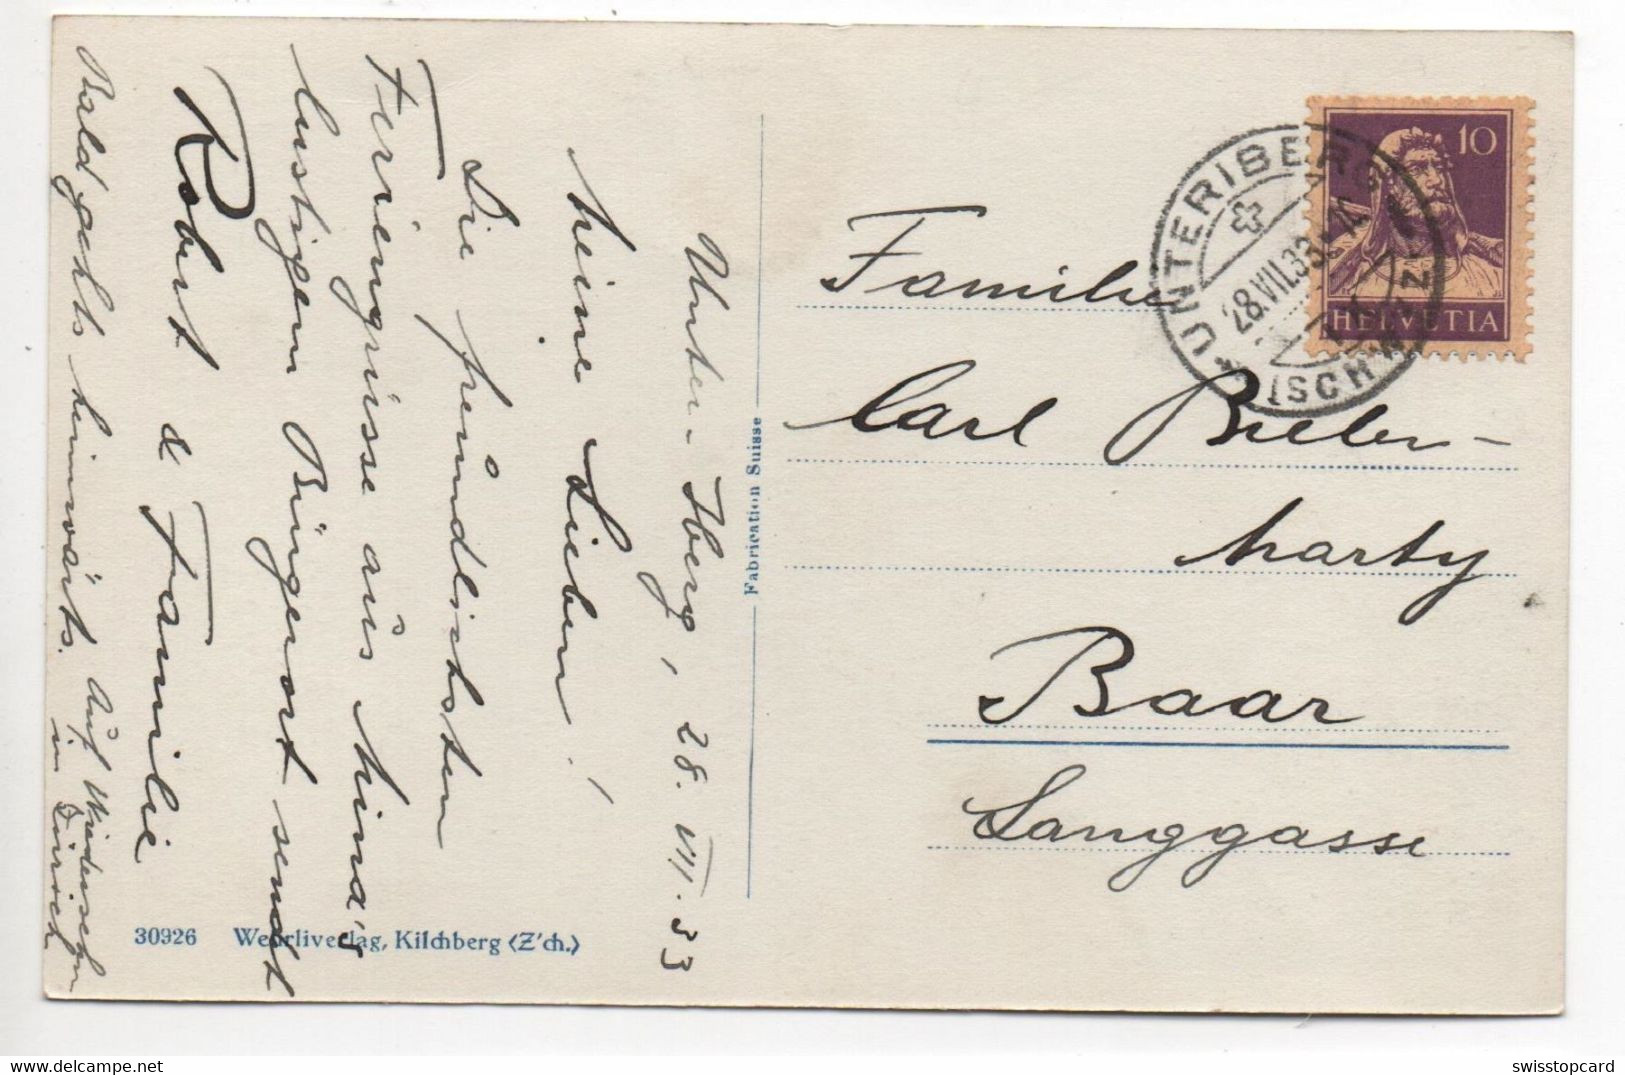 Unter-Iberg, 28. VII. 33
Meine Lieben!
Die freundlichsten
Feriengrüsse aus Mina's
lustigem Bürgerort sendet
Robert & Familie
Bald gehts heimwärts. Auf Wiedersehen
in Zürich
Fabrication Suisse
30926 Wehrliverlag, Kilchberg (Z'ch.)
10
HELVETIA
UNTERIBERG
(SCHWYZ)
28.VII.33
Familie
Carl Bieler-
Marty
Baar
Langgasse
swisstopcard